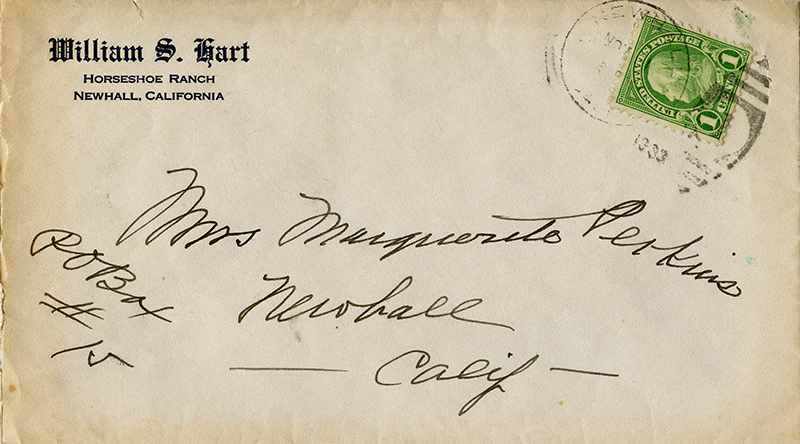 William S. Hart
HORSESHOE RANCH
NEWHALL, CALIFORNIA
UNITED STATES POSTAGE
1 CENT 1
1933
Mrs Marguerite Perkins
P O Box
# 15
Newhall
Calif